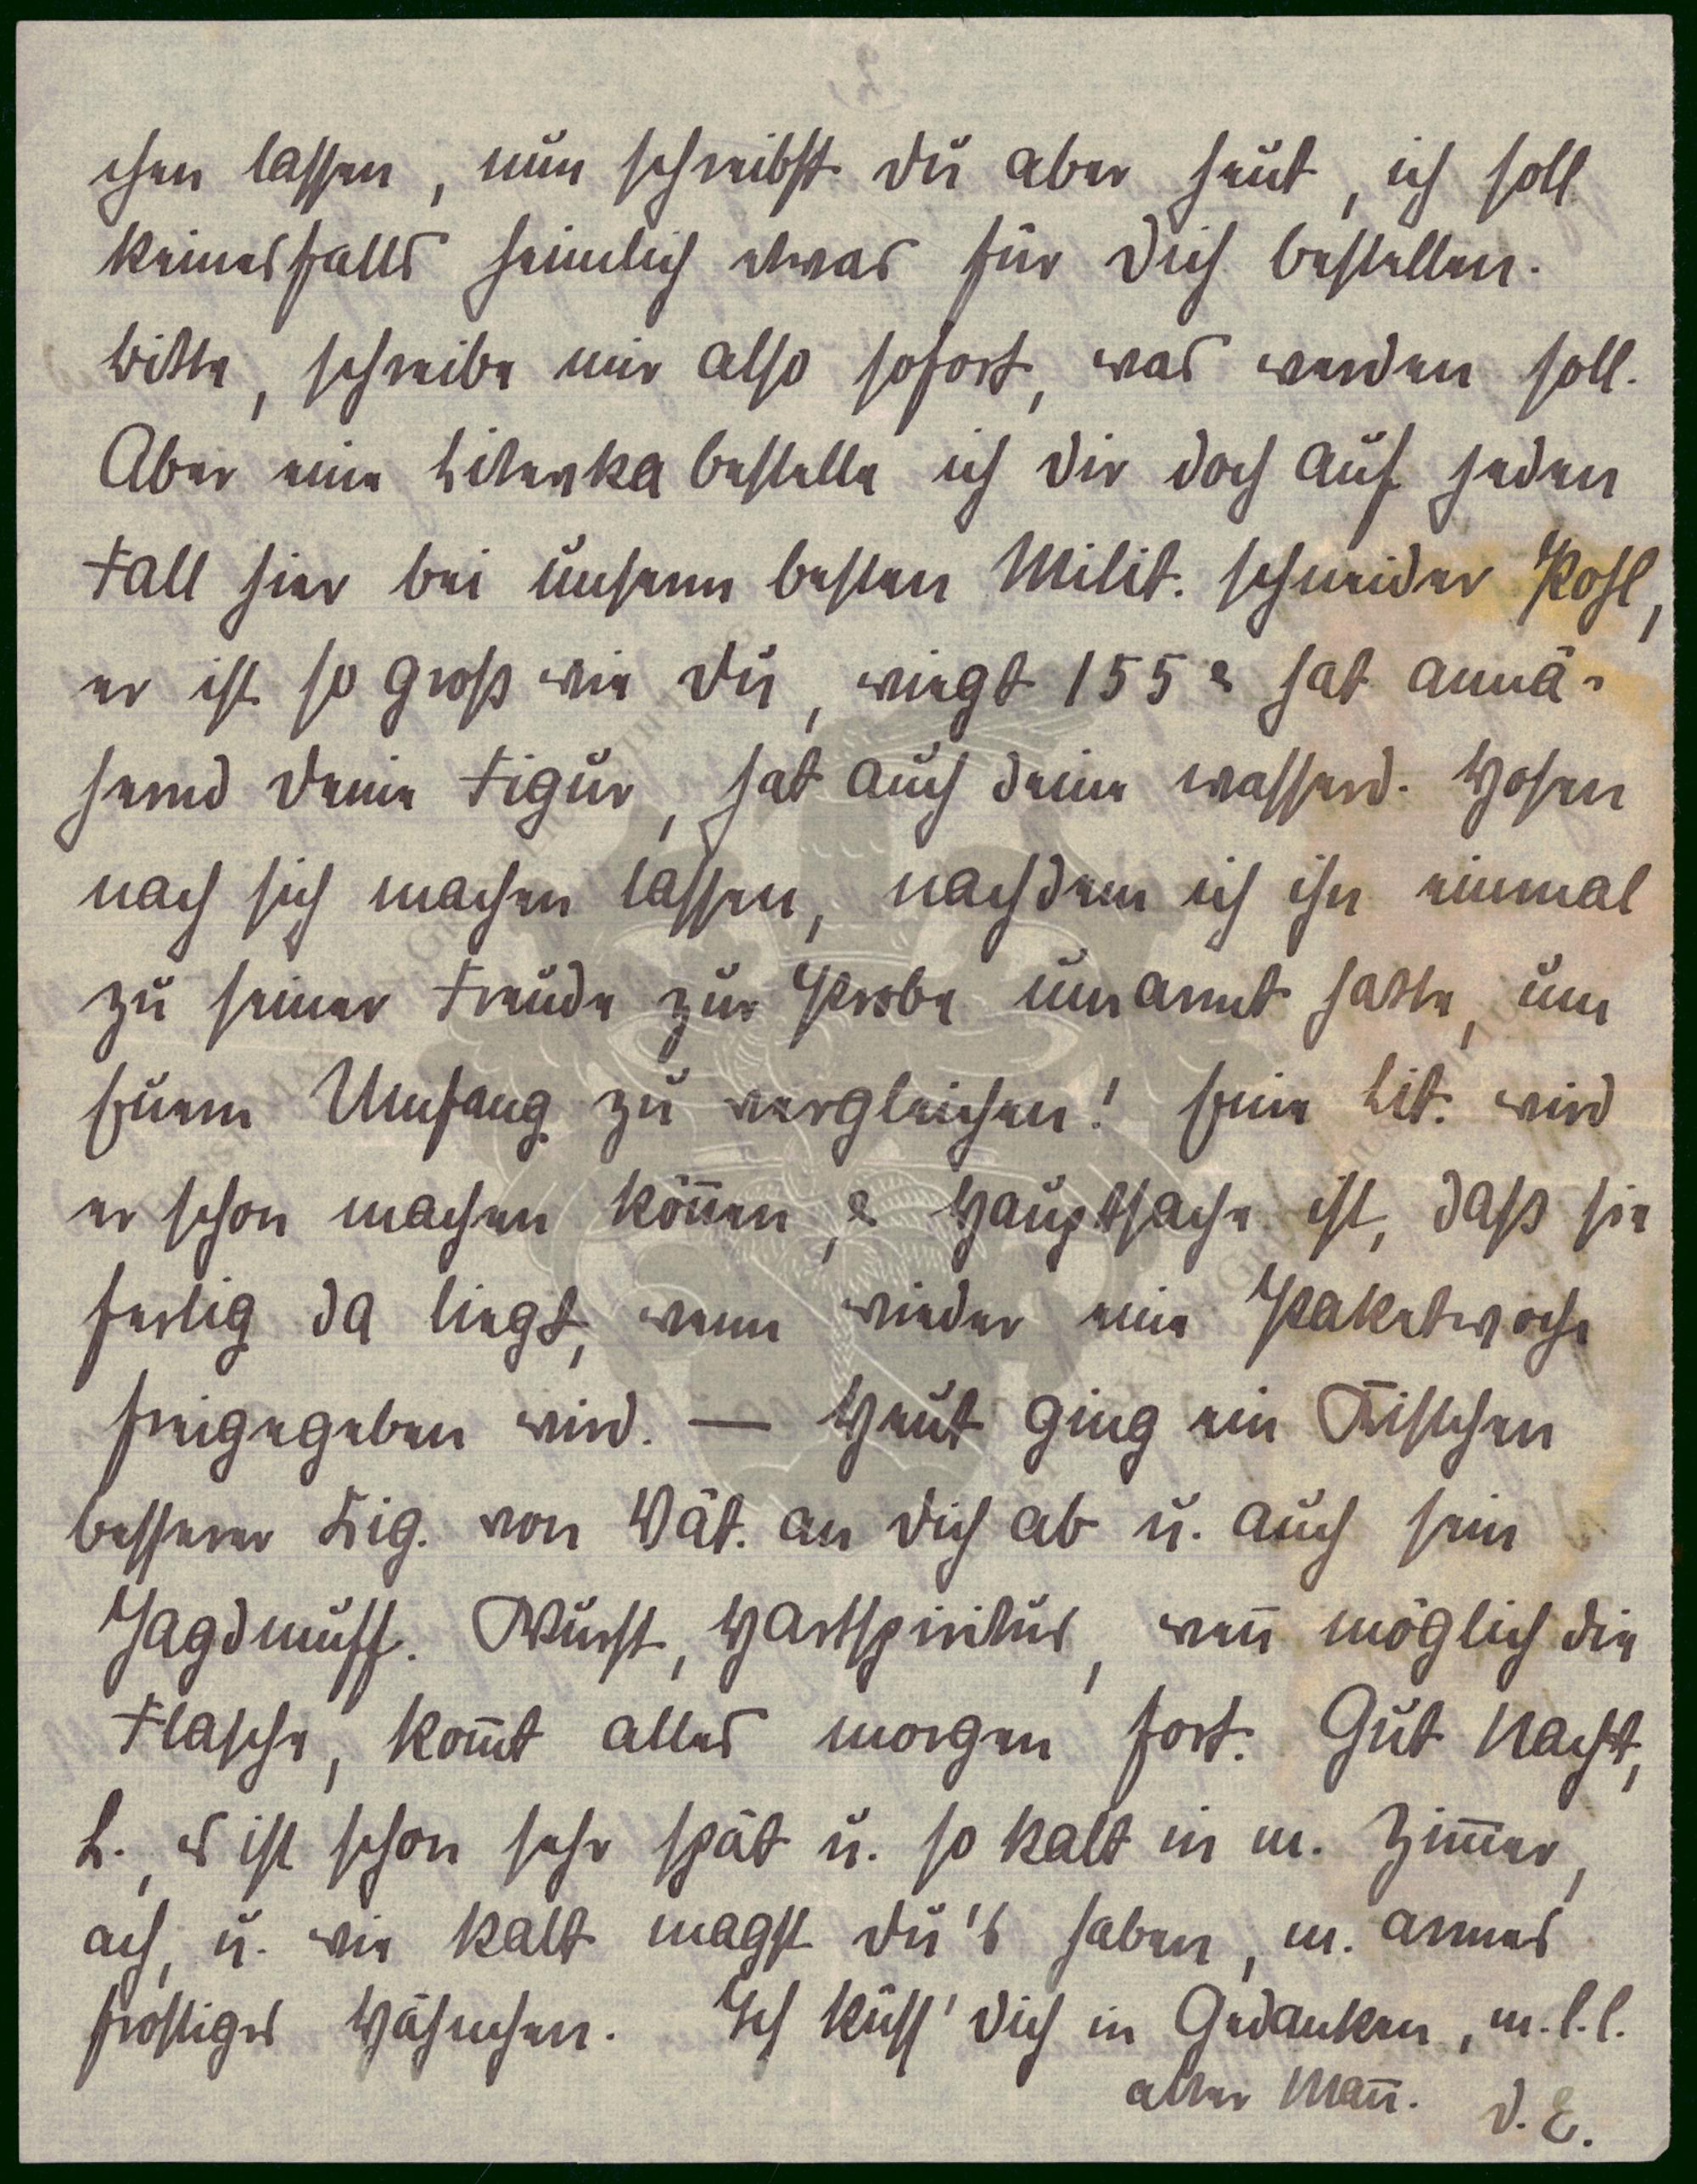 chen lassen, nun schreibst du aber heut, ich soll
keinesfalls heimlich etwas für dich bestellen.
Bitte, schreibe mir also sofort, was werden soll.
Aber eine Litewka bestelle ich dir doch auf jeden
Fall hier bei unserm besten Milit. schneider Pohl,
er ist so groß wie du, wiegt 155 & hat annä-
hernd deine Figur, hat auch deine wasserd. Hosen
nach sich machen lassen, nachdem ich ihn einmal
zu seiner Freude zur Probe umarmt hatte, um
Euern Umfang zu vergleichen! Eine Lit. wird
er schon machen können, & Hauptsache ist, daß sie
fertig da liegt, wenn wieder eine Paketwoche
freigegeben wird. — Heut ging ein Kistchen
besserer Zig. von Vät. an dich ab u. auch sein
Jagdmuff. Wurst, Hartspiritus, wen̄ möglich die
Flasche, kom̄t alles morgen fort. Gut Nacht,
L., es ist schon sehr spät u. so kalt in m. Zim̄er,
ach, u. wie kalt magst du's haben, m. armes
frostiges Hähnchen. Ich küss' dich in Gedanken, m. l. l.
alter Man̄. d. E.